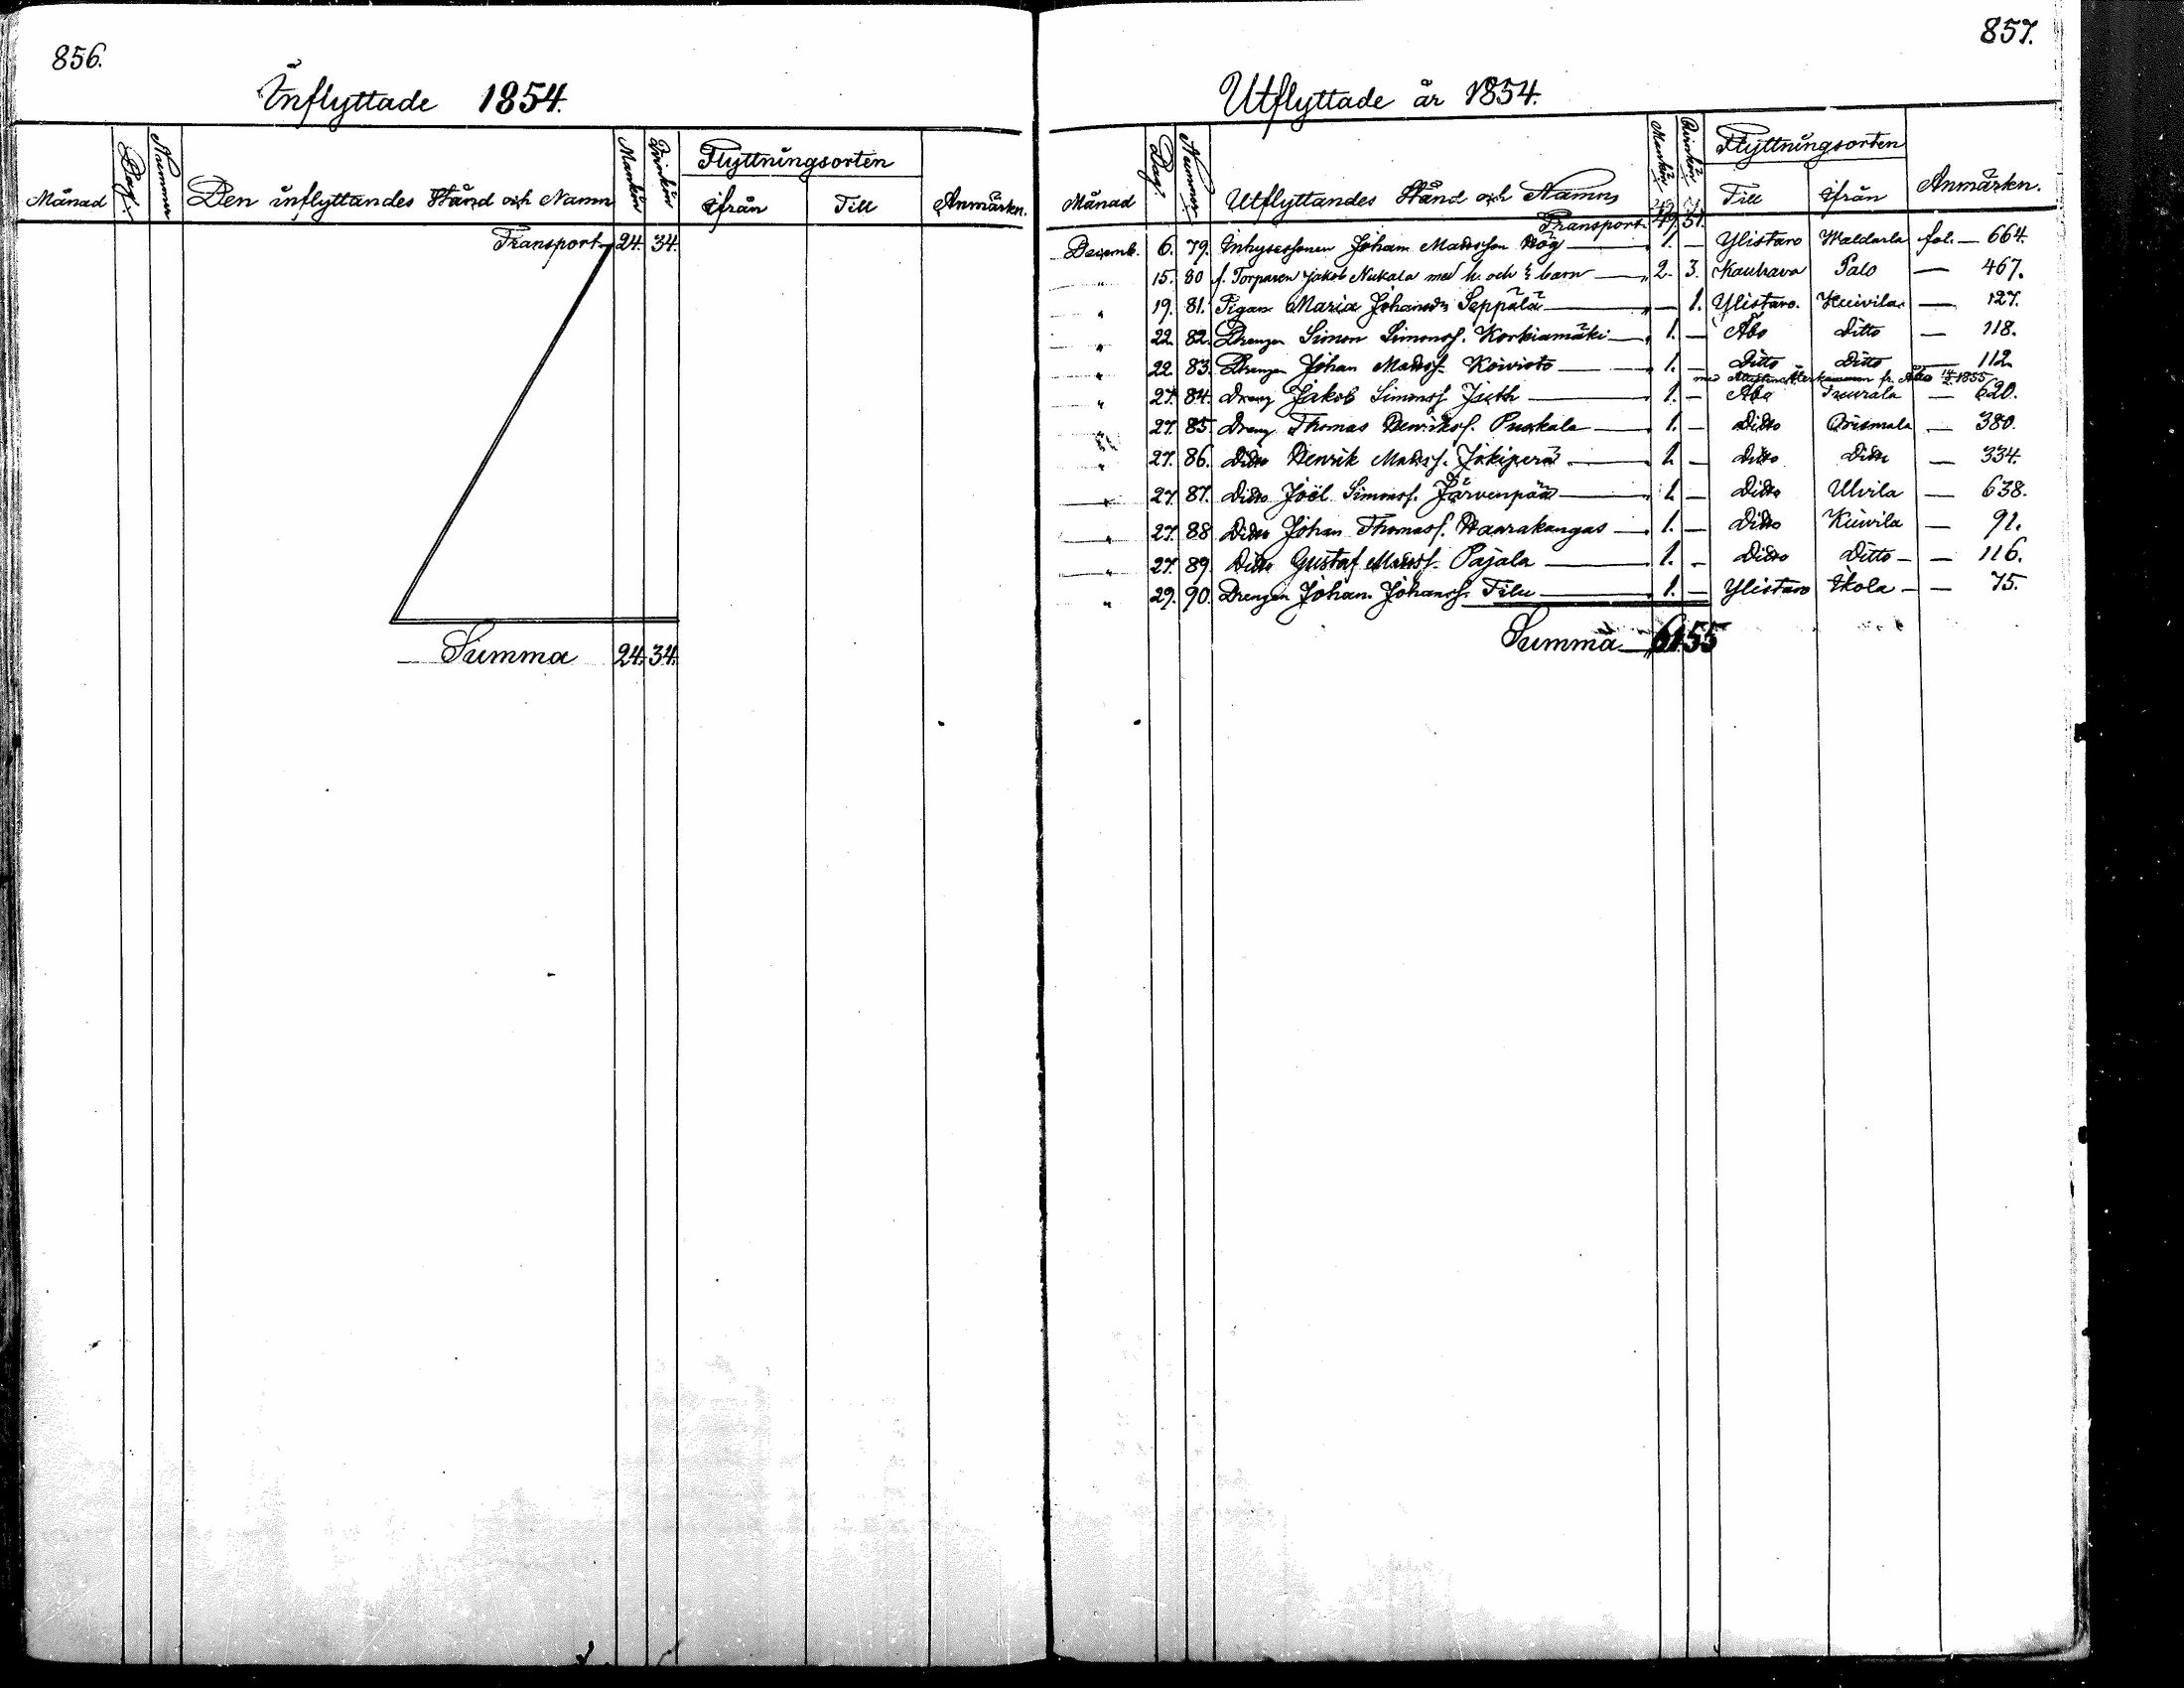 856.
Inflyttade 1854.
Månad Dag. Nummer Den inflyttandes Stånd och Namn Mankön Qvinkön Flyttningsorten ifrån Till Anmärkn.
Transport 24. 34.
Summa 24. 34.
857.
Utflyttade år 1854.
Månad Dag. Nummer Utflyttandes Stånd och Namn Mankön Qvinkön Flyttningsorten Till ifrån Anmärkn.
Transport 49. 51.
Decemb. 6. 79. Inhysessonen Johan Madsson Hög 1. — Ylistaro Waldarla fol. — 664.
" 15. 80 f. Torparen Jakob Niukala med h. och 3 barn 2. 3. Kauhava Palo — 467.
" 19. 81. Pigan Maria Johansdr Seppälä — 1. Ylistaro. Kiivila — 127.
" 22. 82. Drengen Simon Simonss. Korkiamäki 1. — Åbo Ditto — 118.
" 22 83. Drengen Johan Madss. Koivisto 1. — Ditto Ditto — 112.
med Återkommen fr. Åbo 1855
" 27. 84. Dreng Jakob Simonss 1. — Åbo — 620.
" 27. 85. Dreng Thomas Henrikss. Puskala 1. — Ditto Orismala — 380.
" 27. 86. Ditto Henrik Madss. Jokiperä 1. — Ditto Ditto — 334.
" 27. 87. Ditto Joël Simonss. Järvenpää 1. — Ditto Ulvila — 638.
" 27. 88 Ditto Johan Thomass. Haarakangas 1. — Ditto Kiivila — 91.
" 27. 89. Ditto Gustaf Madss. Pajala 1. — Ditto Ditto — 116.
" 29. 90. Drengen Johan Johanss. Filu 1. — Ylistaro Ikola — 75.
Summa 61. 55